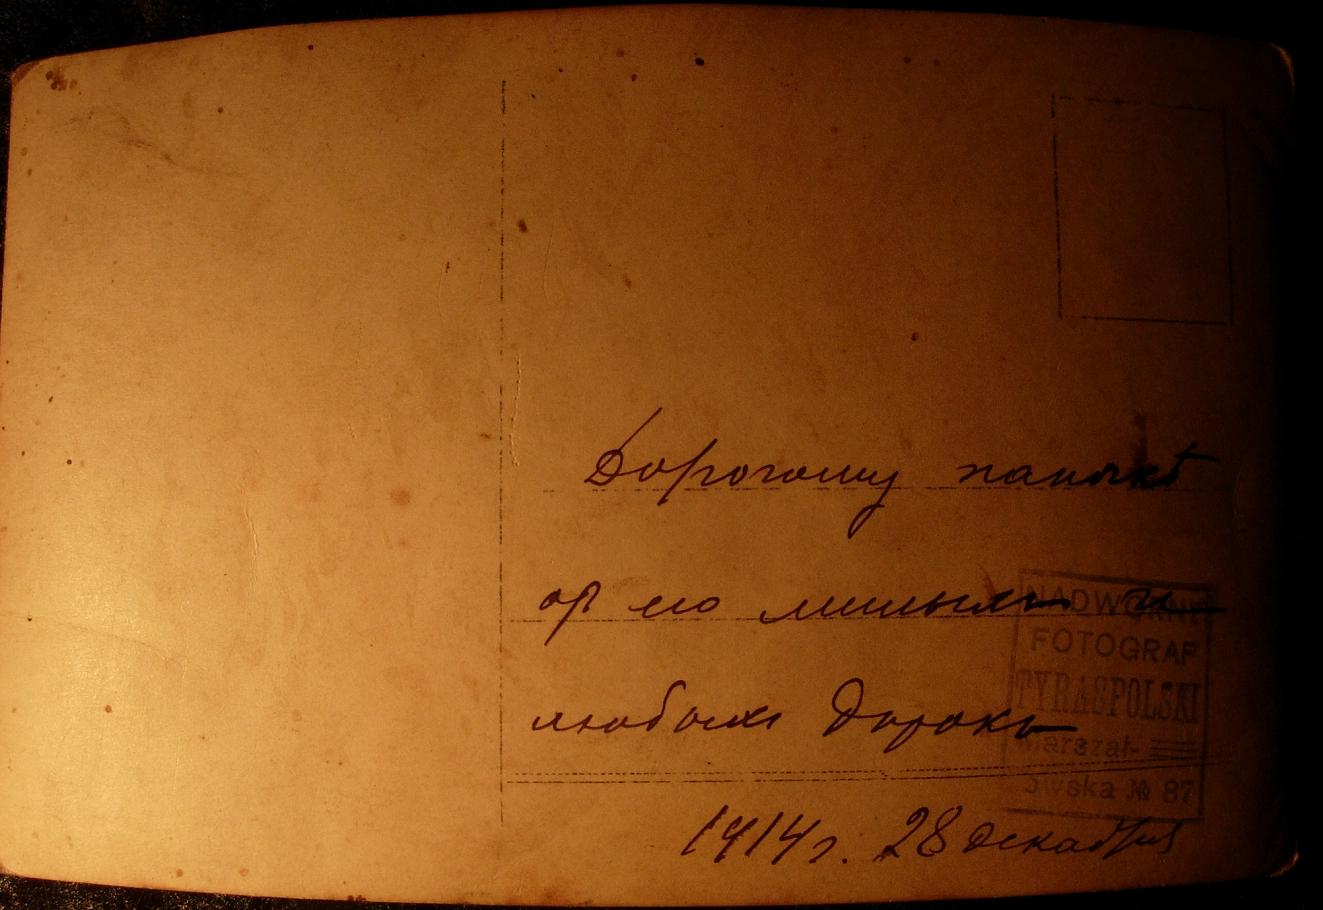 Дорогому папочкѣ
от его милыхъ и
1914 г. 28 декабря
NADWORNY
FOTOGRAF
TYRASPOLSKI
Marszał-
owska № 87